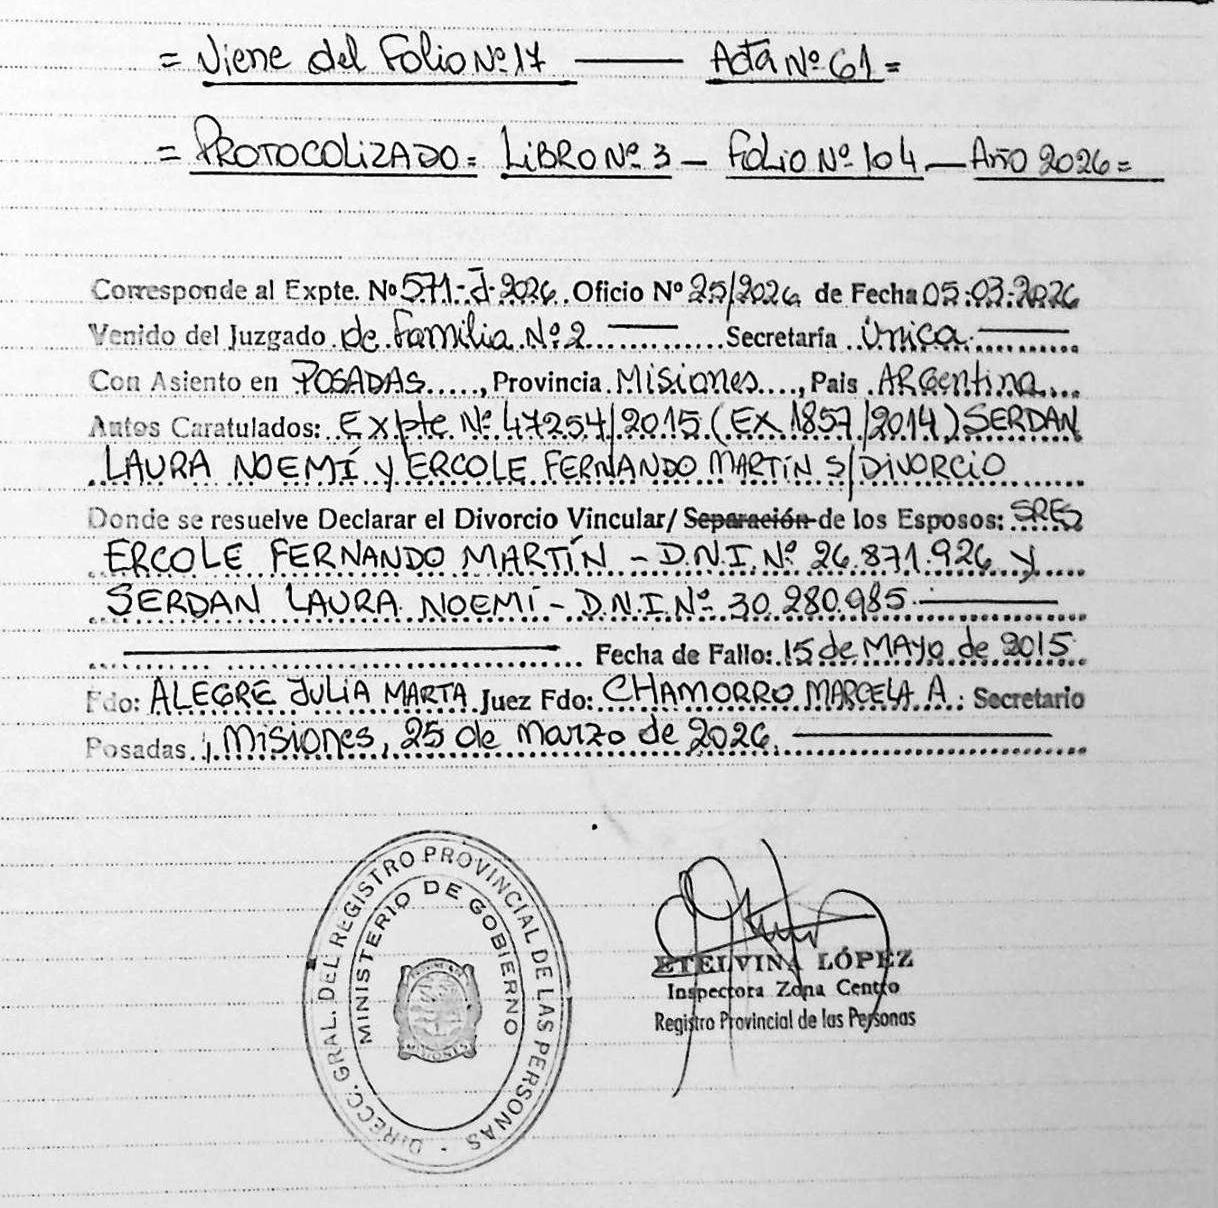 = Viene del Folio Nº 17 — Acta Nº 61 =
= PROTOCOLIZADO = LIBRO Nº 3 — FOLIO Nº 104 — AÑO 2026 =
Corresponde al Expte. Nº 571-J-2026. Oficio Nº 25/2026 de Fecha 05.03.2026
Venido del Juzgado de Familia Nº 2 Secretaría Única
Con Asiento en POSADAS, Provincia Misiones, Pais ARGentina
Autos Caratulados: Expte Nº 47254/2015 (EX 1857/2014) SERDAN
LAURA NOEMÍ y ERCOLE FERNANDO MARTÍN S/DIVORCIO
Donde se resuelve Declarar el Divorcio Vincular/ Separación de los Esposos: SRES
ERCOLE FERNANDO MARTÍN - D.N.I. Nº 26.871.926 y
SERDAN LAURA NOEMÍ - D.N.I. Nº 30.280.985
Fecha de Fallo: 15 de MAYO de 2015
Fdo: ALEGRE JULIA MARTA Juez Fdo: CHAMORRO MARCELA A. Secretario
Posadas, Misiones, 25 de Marzo de 2026.
DIRECC. GRAL. DEL REGISTRO PROVINCIAL DE LAS PERSONAS
MINISTERIO DE GOBIERNO
ETELVINA LÓPEZ
Inspectora Zona Centro
Registro Provincial de las Personas